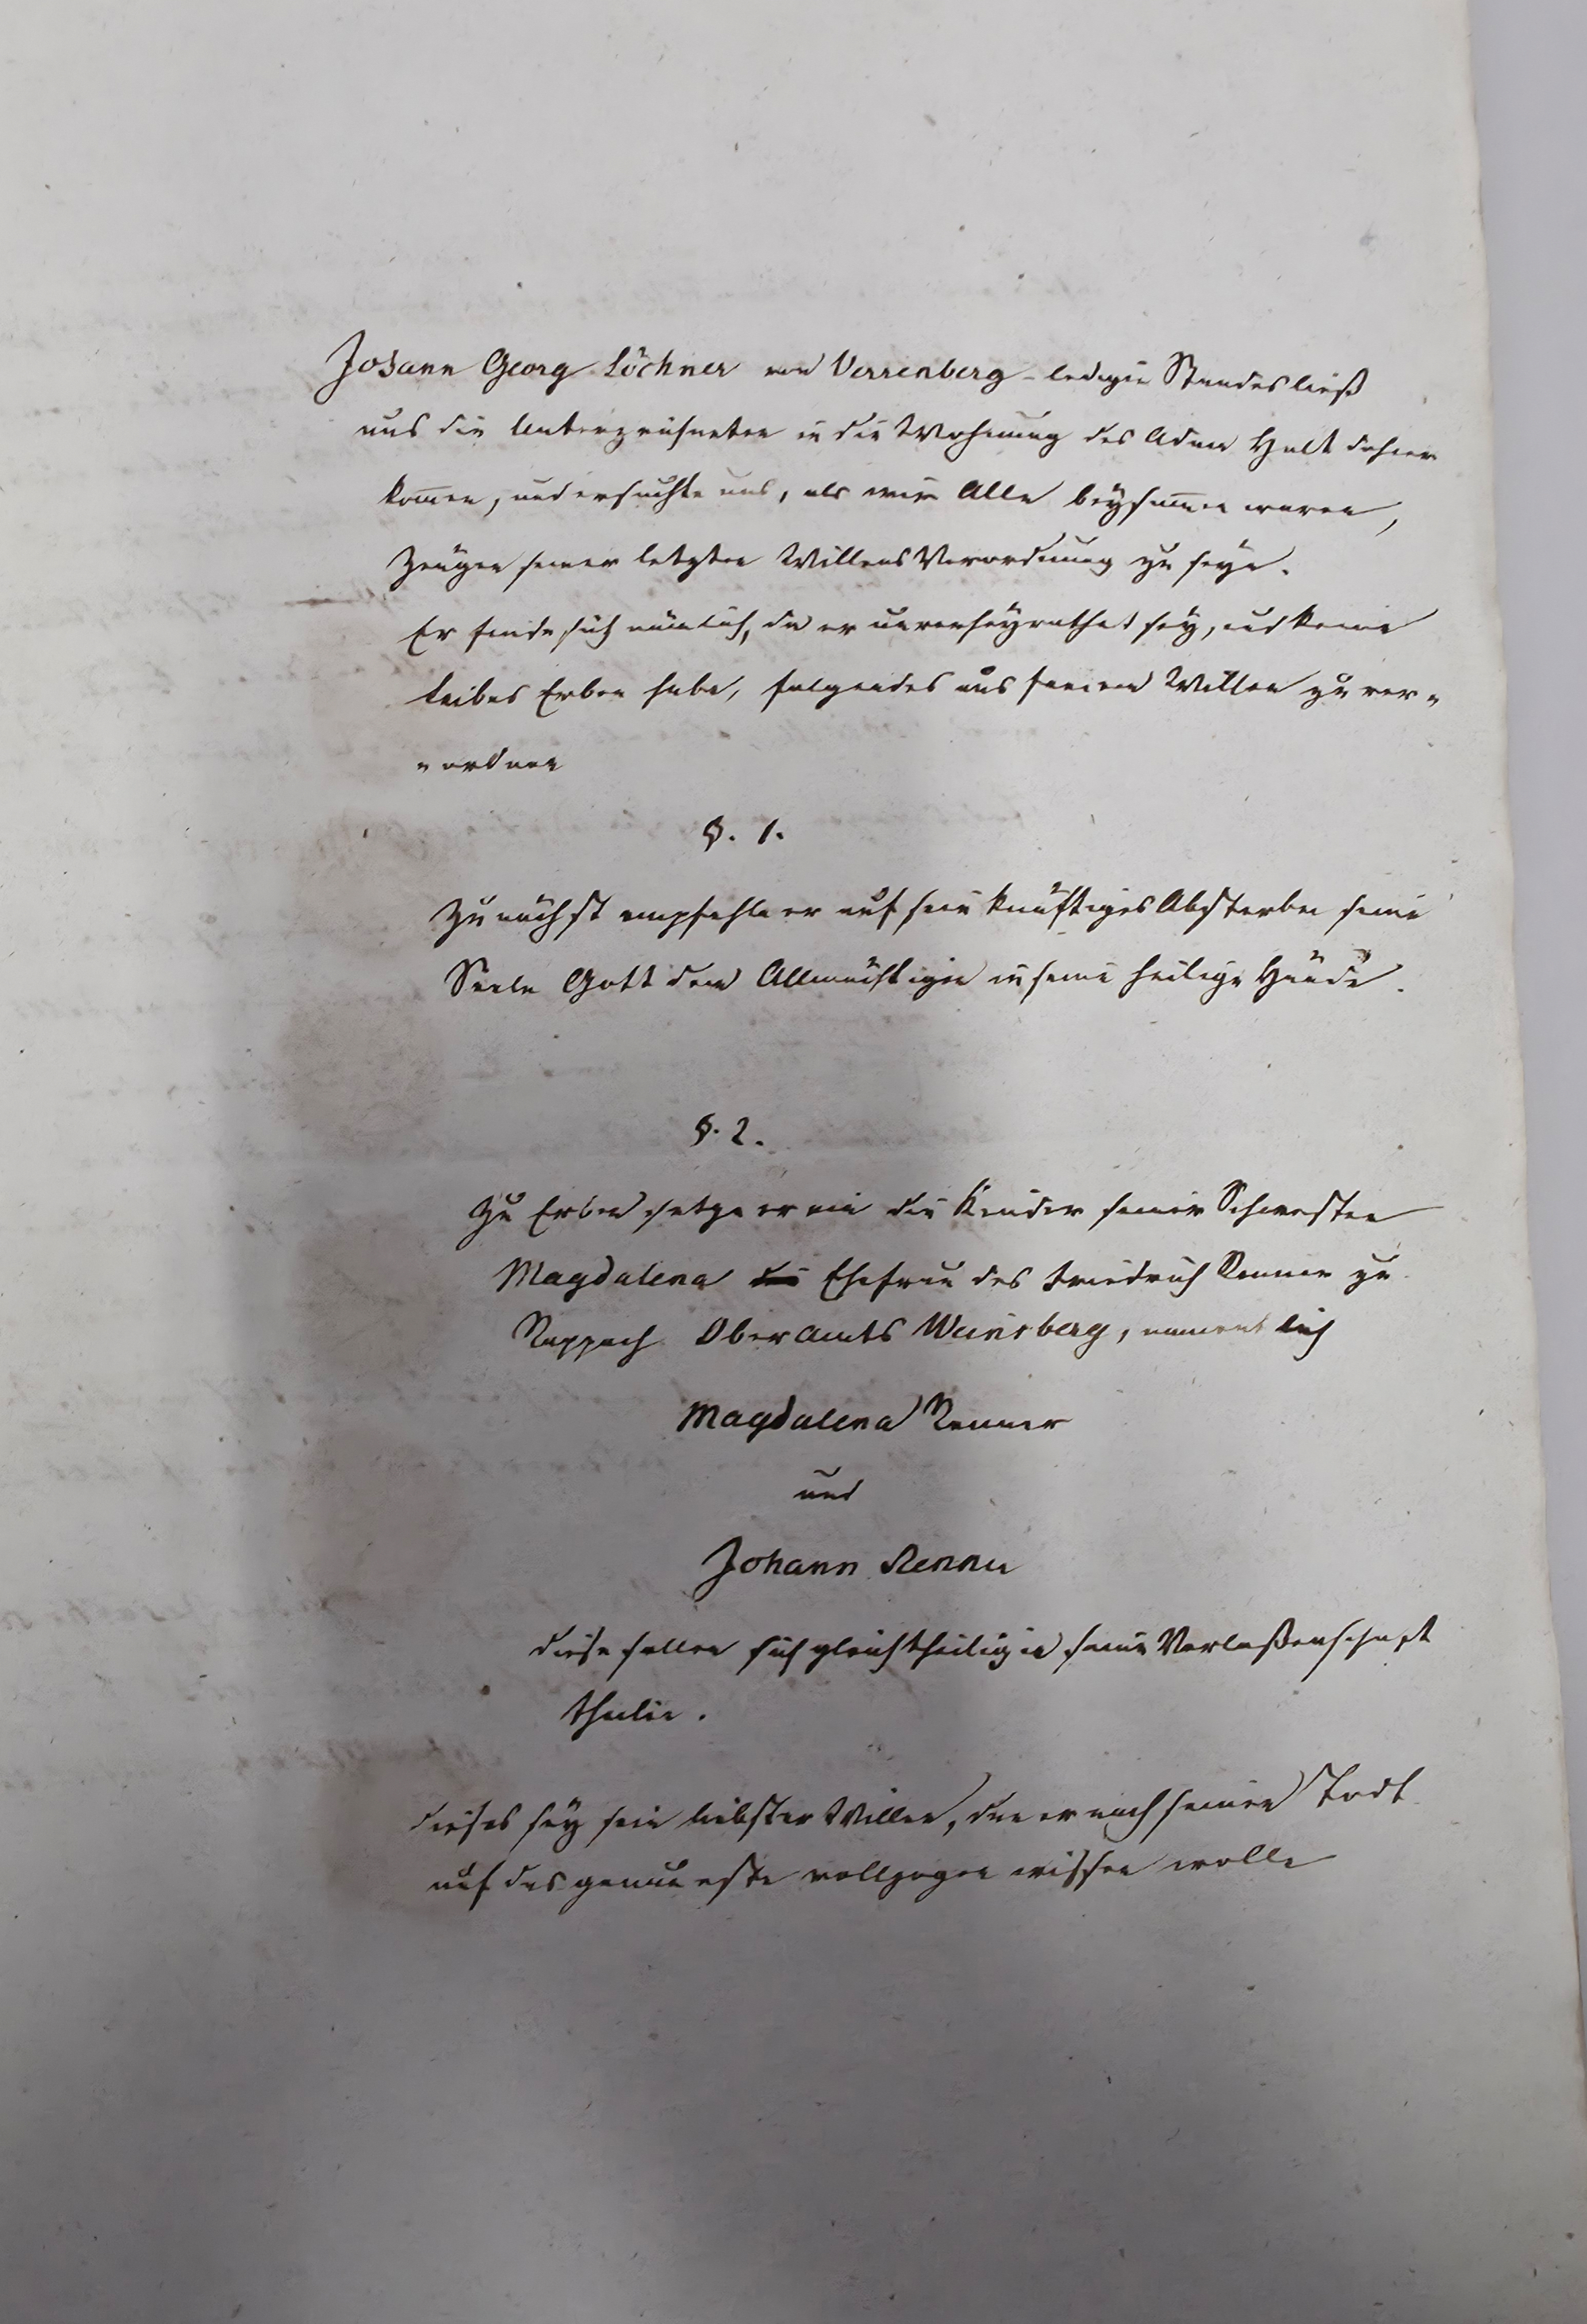 Johann Georg Löchner von Verrenberg ledigen Standes ließ
uns die Unterzeichneten in die Wohnung des Adam Hult daher
kom̄en, und ersuchte uns, als wir Alle beysam̄en waren,
Zeugen seiner letzten Willens Verordnung zu seyn.
Er finde sich nämlich, da er unverheyrathet sey, und keine
Leibes Erben habe, folgendes aus freiem Willen zu ver„
„ordnen
§. 1.
Zunächst empfehle er auf sein künftiges Absterben seine
Seele Gott dem Allmächtigen in seine heilige Hände.
§. 2.
Zu Erben setze er ein die Kinder seiner Schwester
Magdalena Ehefrau des Friedrich Renner zu
Rappach Oberamts Weinsberg, namentlich
Magdalena Renner
und
Johann Renner
diese sollen sich gleichtheilig in seine Verlaßenschaft
theilen.
dieses sey sein liebster Willen, den er nach seinem Todt
auf das genaueste vollzogen wissen wolle